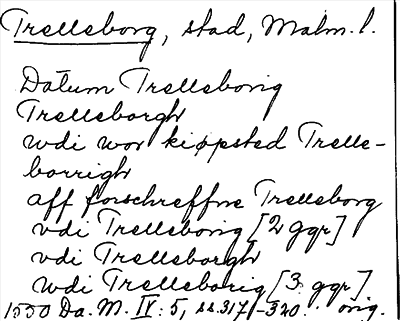 Trelleborg, stad, Malm. l.
Datum Trelleborig
Trelleborgh
wdi wor kiøpsted Trelle-
borrigh
aff forschreffne Trelleborg
vdi Trelleborig [2 ggr]
vdi Trelleborgh
wdi Trelleborig [3 ggr]
1550 Da. M. IV: 5, ss. 317-320. orig.